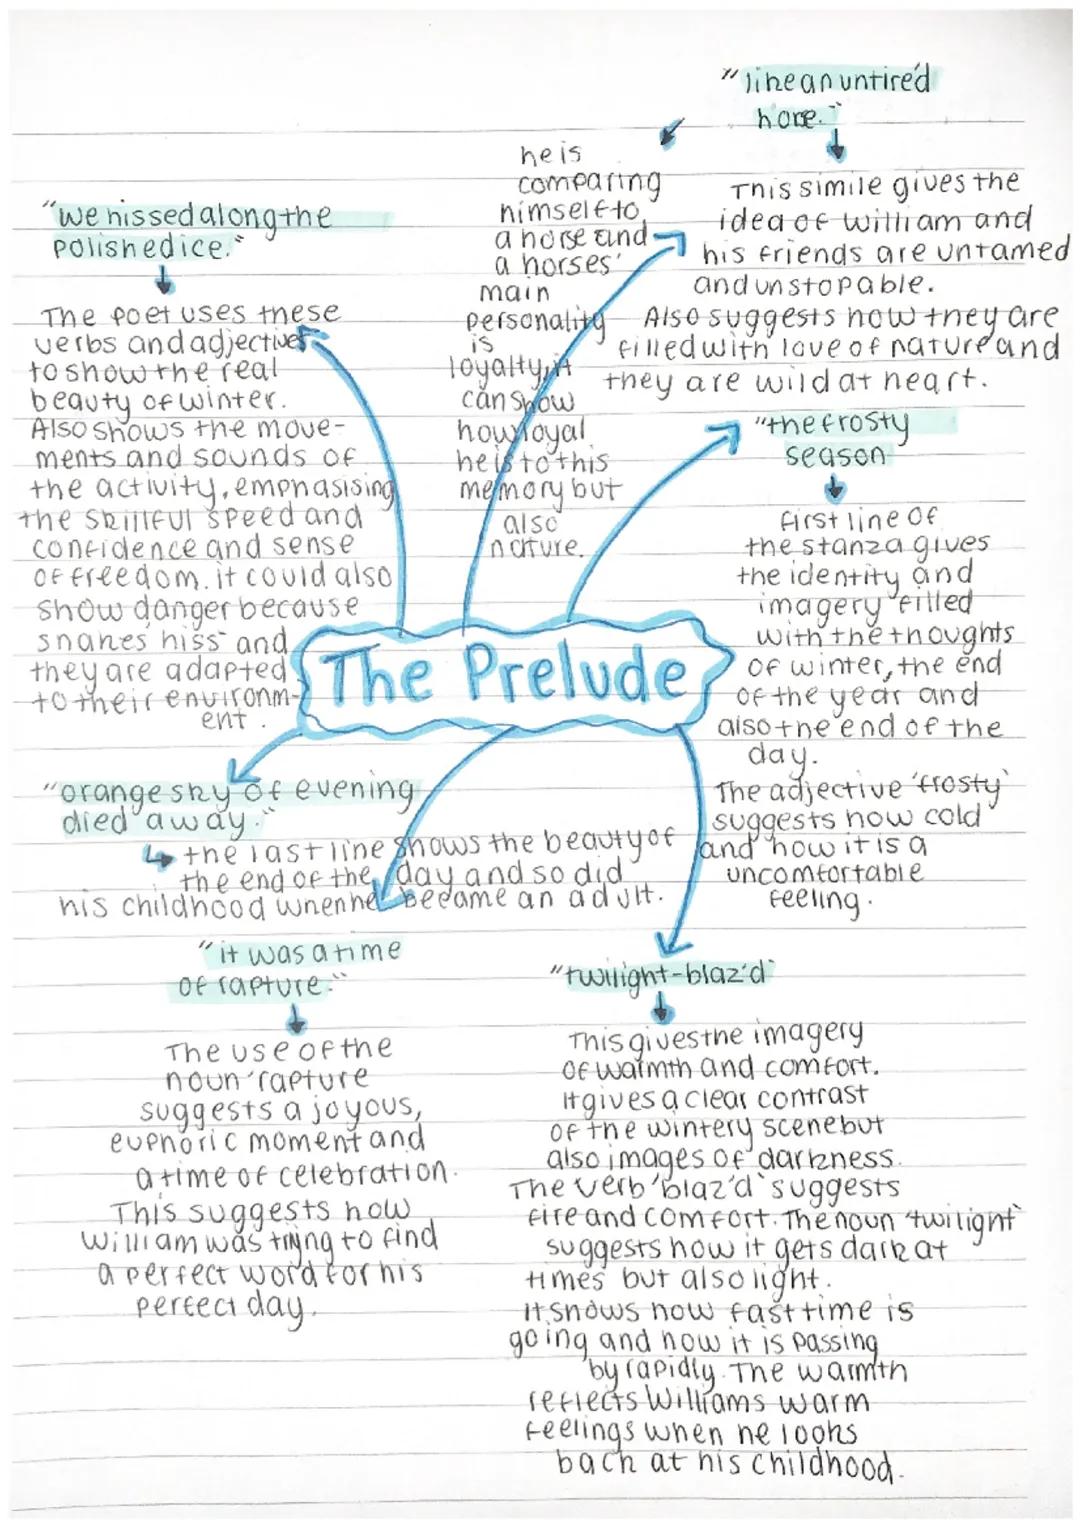 "like an untired
horse."
he is
comparing
himself to
a horse and
a horses'
main
personality
is
loyalty, it
can show
how loyal
he is to this
memory but
also
nature.
This simile gives the
idea of william and
his friends are untamed
and unstopable.
Also suggests how they are
filled with love of nature and
they are wild at heart.
"we hissed along the
polished ice."
The poet uses these
verbs and adjectives
to show the real
beauty of winter.
Also shows the move-
ments and sounds of
the activity, emphasising
the skillful speed and
confidence and sense
of freedom. it could also
show danger because
snakes hiss and
they are adapted
to their environm-
ent.
"the frosty
season
first line of
the stanza gives
the identity and
imagery filled
with the thoughts
of winter, the end
of the year and
also the end of the
day.
The adjective 'frosty'
suggests how cold
and how it is a
uncomfortable
feeling.
The Prelude
"orange sky of evening
died away."
the last line shows the beauty of
the end of the day and so did
his childhood when he became an adult.
"it was a time
of rapture."
The use of the
noun 'rapture
suggests a joyous,
euphoric moment and
a time of celebration.
This suggests how
William was trying to find
a perfect word for his
perfect day.
"twilight-blaz'd"
This gives the imagery
of warmth and comfort.
It gives a clear contrast
of the wintery scene but
also images of darkness.
The verb 'blaz'd' suggests
fire and comfort. The noun 'twilight'
suggests how it gets dark at
times but also light.
It shows how fast time is
going and how it is passing
by rapidly. The warmth
reflects Williams warm
feelings when he looks
back at his childhood.